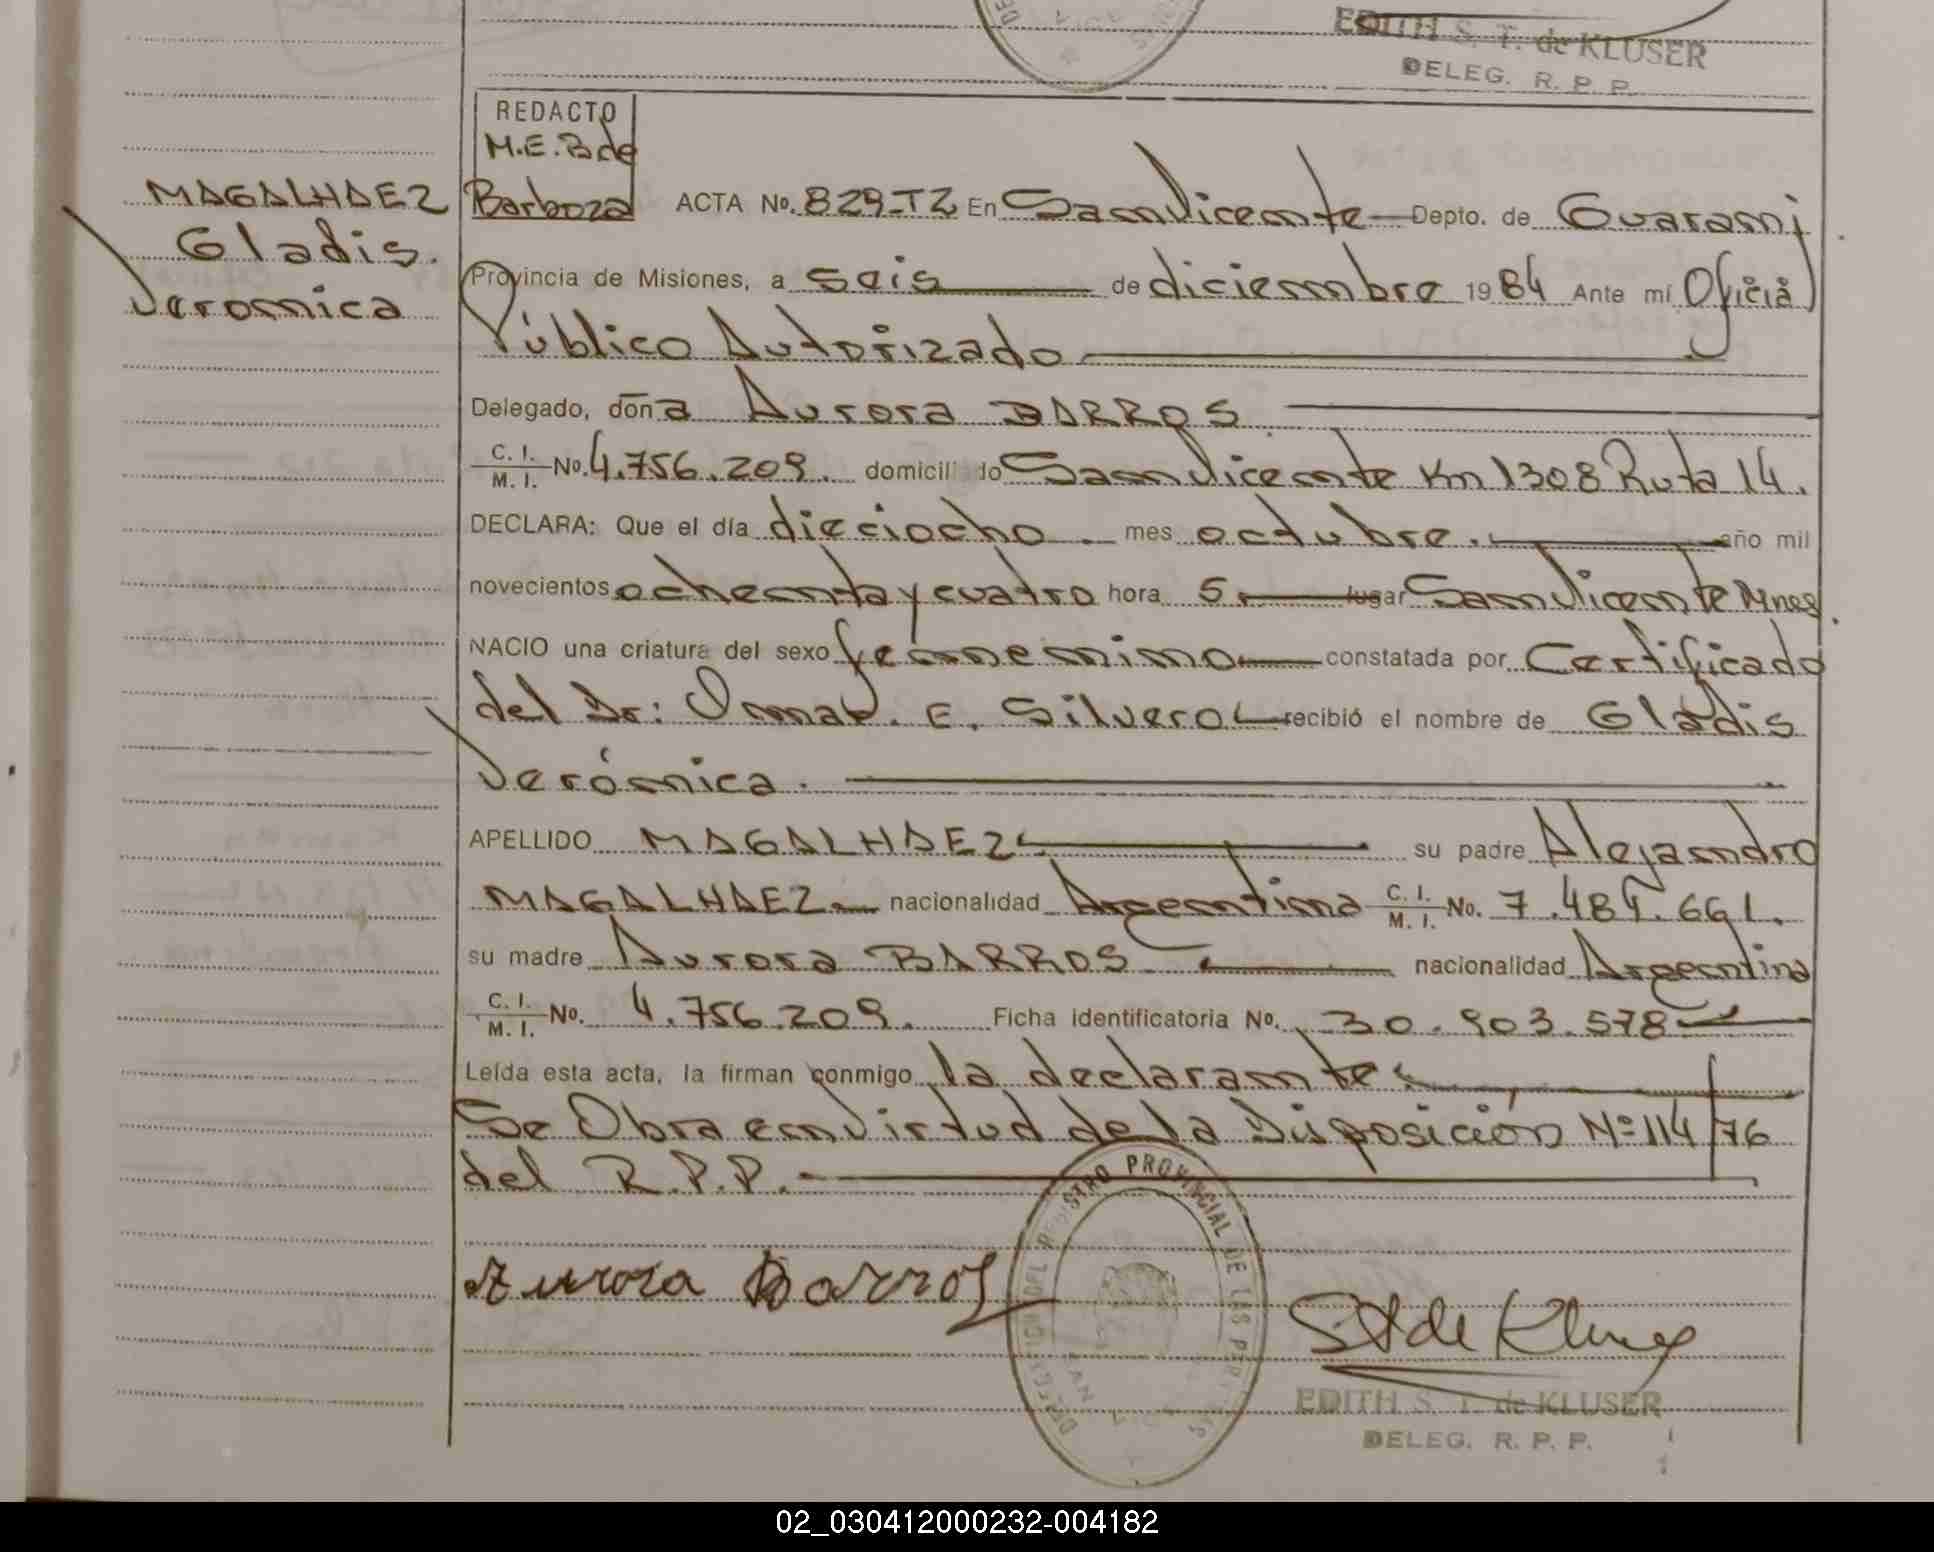 EDITH S. T. de KLUSER
DELEG. R. P. P.
REDACTO
M.E.B de
Barboza
MAGALHAEZ
Gladis.
Veronica
ACTA No. 829-TZ En San Vicente Depto. de Guarani
Provincia de Misiones, a seis de diciembre 1984 Ante mí Oficial
Público Autorizado
Delegado, don a Aurora BARROS
C. I. / M. I. No. 4.756.209. domiciliado San Vicente Km 1308 Ruta 14.
DECLARA: Que el día dieciocho mes octubre. año mil
novecientos ochenta y cuatro hora 5. lugar San Vicente Mnes.
NACIO una criatura del sexo femenino constatada por Certificado
del Dr: Omar. E. Silvero recibió el nombre de Gladis
Verónica.
APELLIDO MAGALHAEZ su padre Alejandro
MAGALHAEZ nacionalidad Argentina C. I. / M. I. No. 7.484.661.
su madre Aurora BARROS nacionalidad Argentina
C. I. / M. I. No. 4.756.209. Ficha identificatoria No. 30.903.578
Leída esta acta, la firman conmigo la declarante.
Se Obra en virtud de la Disposición Nº 114/76
del R.P.P.
Aurora Barros
DELEGACION DEL REGISTRO PROVINCIAL DE LAS PERSONAS
SAN VICENTE
S T de Kluser
EDITH S. T. de KLUSER
DELEG. R. P. P.
02_030412000232-004182